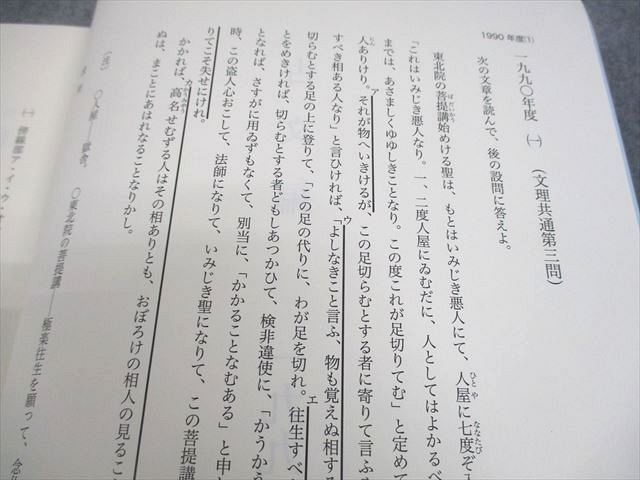 1990年度(1)
一九九〇年度 ㈠ (文理共通第三問)
次の文章を読んで、後の設問に答えよ。
東北院の菩提講始めける聖は、もとはいみじき悪人にて、人屋に七度ぞ
「これはいみじき悪人なり。一、二度人屋にゐむだに、人としてはよかるべ
までは、あさましくゆゆしきことなり。この度これが足切りてむ」と定めて
人ありけり。それが物へいきけるが、この足切らむとする者に寄りて言ふ
すべき相ある人なり」と言ひければ、「よしなきこと言ふ、物も覚えぬ相する
切らむとする足の上に登りて、「この足の代りに、わが足を切れ。往生すべ
とをめきければ、切らむとする者どもしあつかひて、検非違使に、「かうかう
となれば、さすがに用ゐずもなくて、別当に、「かかることなむある」と申
時、この盗人心おこして、法師になりて、いみじき聖になりて、この菩提講
りてこそ失せにけれ。
かかれば、高名せむずる人はその相ありとも、おぼろけの相人の見るこ
ぬは、まことにあはれなることなりかし。
(注) 〇人屋——獄舎。 〇東北院の菩提講——極楽往生を願って、念
㈠ 傍線部ア・イ・ウ・